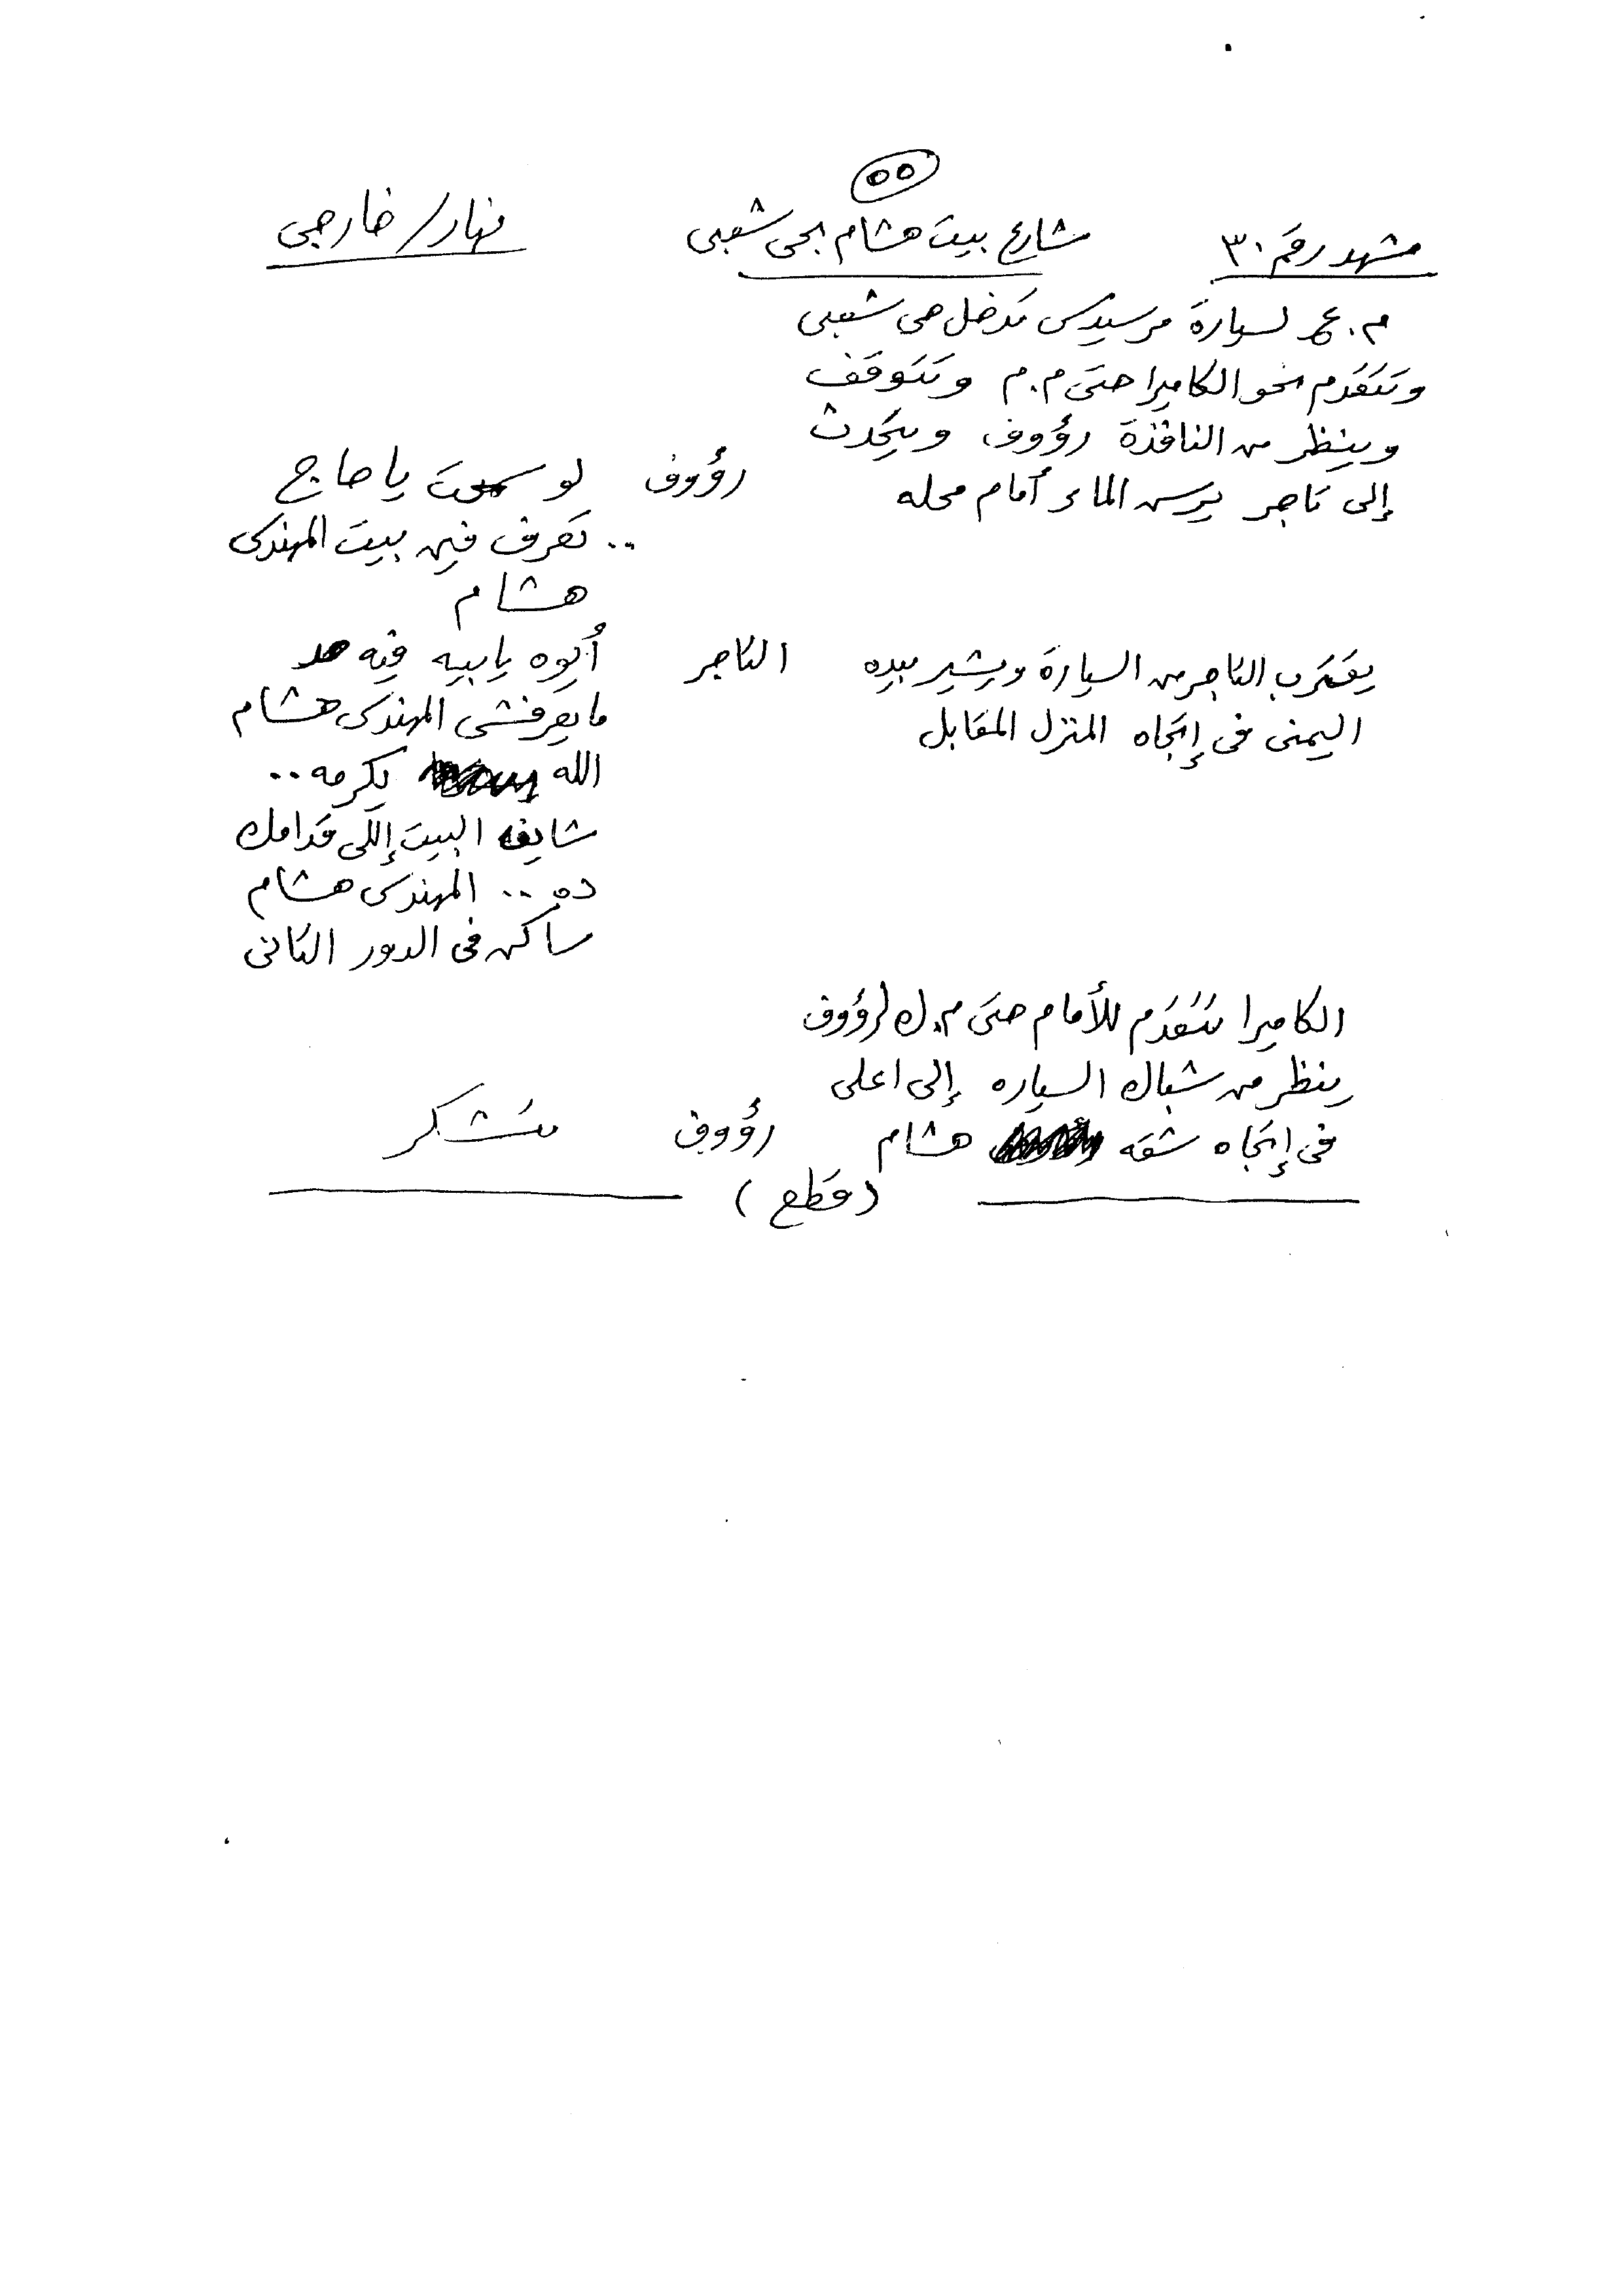 ٥٥
مشهد رقم ٣٠ شارع بيت هشام بحى شعبى نهار/خارجى
م.ع لسيارة مرسيدس تدخل حى شعبى
وتتقدم نحو الكاميرا حتى م.م وتتوقف
وينظر من النافذة رؤوف ويتحدث
إلى تاجر يرس الماء أمام محله
رؤوف لو سمحت يا حاج
.. تعرف فين بيت المهندس
هشام
يقترب التاجر من السيارة ويشير بيده
اليمنى فى إتجاه المنزل المقابل
التاجر أيوه يا بيه فيه حد
ما يعرفشى المهندس هشام
الله يكرمه ..
شايف البيت إللى قدامك
ده .. المهندس هشام
ساكن فى الدور التانى
الكاميرا تتقدم للأمام حتى م.ك لرؤوف
ينظر من شباك السياره إلى اعلى
فى إتجاه شقه هشام
رؤوف متشكر
(قطع)